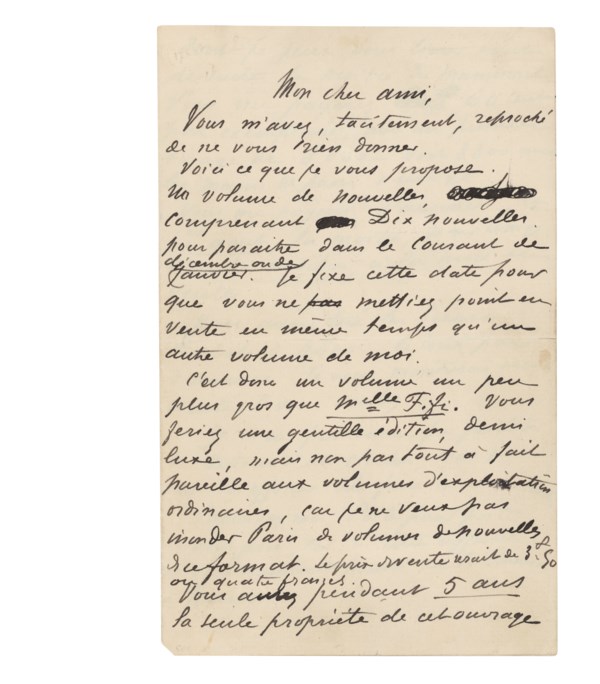 Mon cher ami,
Vous m'avez, tacitement, reproché
de ne vous rien donner.
Voici ce que je vous propose.
Un volume de nouvelles,
comprenant Dix nouvelles.
pour paraitre dans le courant de
décembre ou de
Janvier. Je fixe cette date pour
que vous ne pas mettiez point en
vente en même temps qu'un
autre volume de moi.
C'est donc un volume un peu
plus gros que Melle Fifi. Vous
feriez une gentille édition, demi
luxe, mais non pas tout à fait
pareille aux volumes d'exploitation
ordinaires, car je ne veux pas
inonder Paris de volumes de nouvelles
de ce format. Le prix de vente serait de 3f. 50
ou quatre francs.
Vous aurez pendant 5 ans
la seule propriété de cet ouvrage